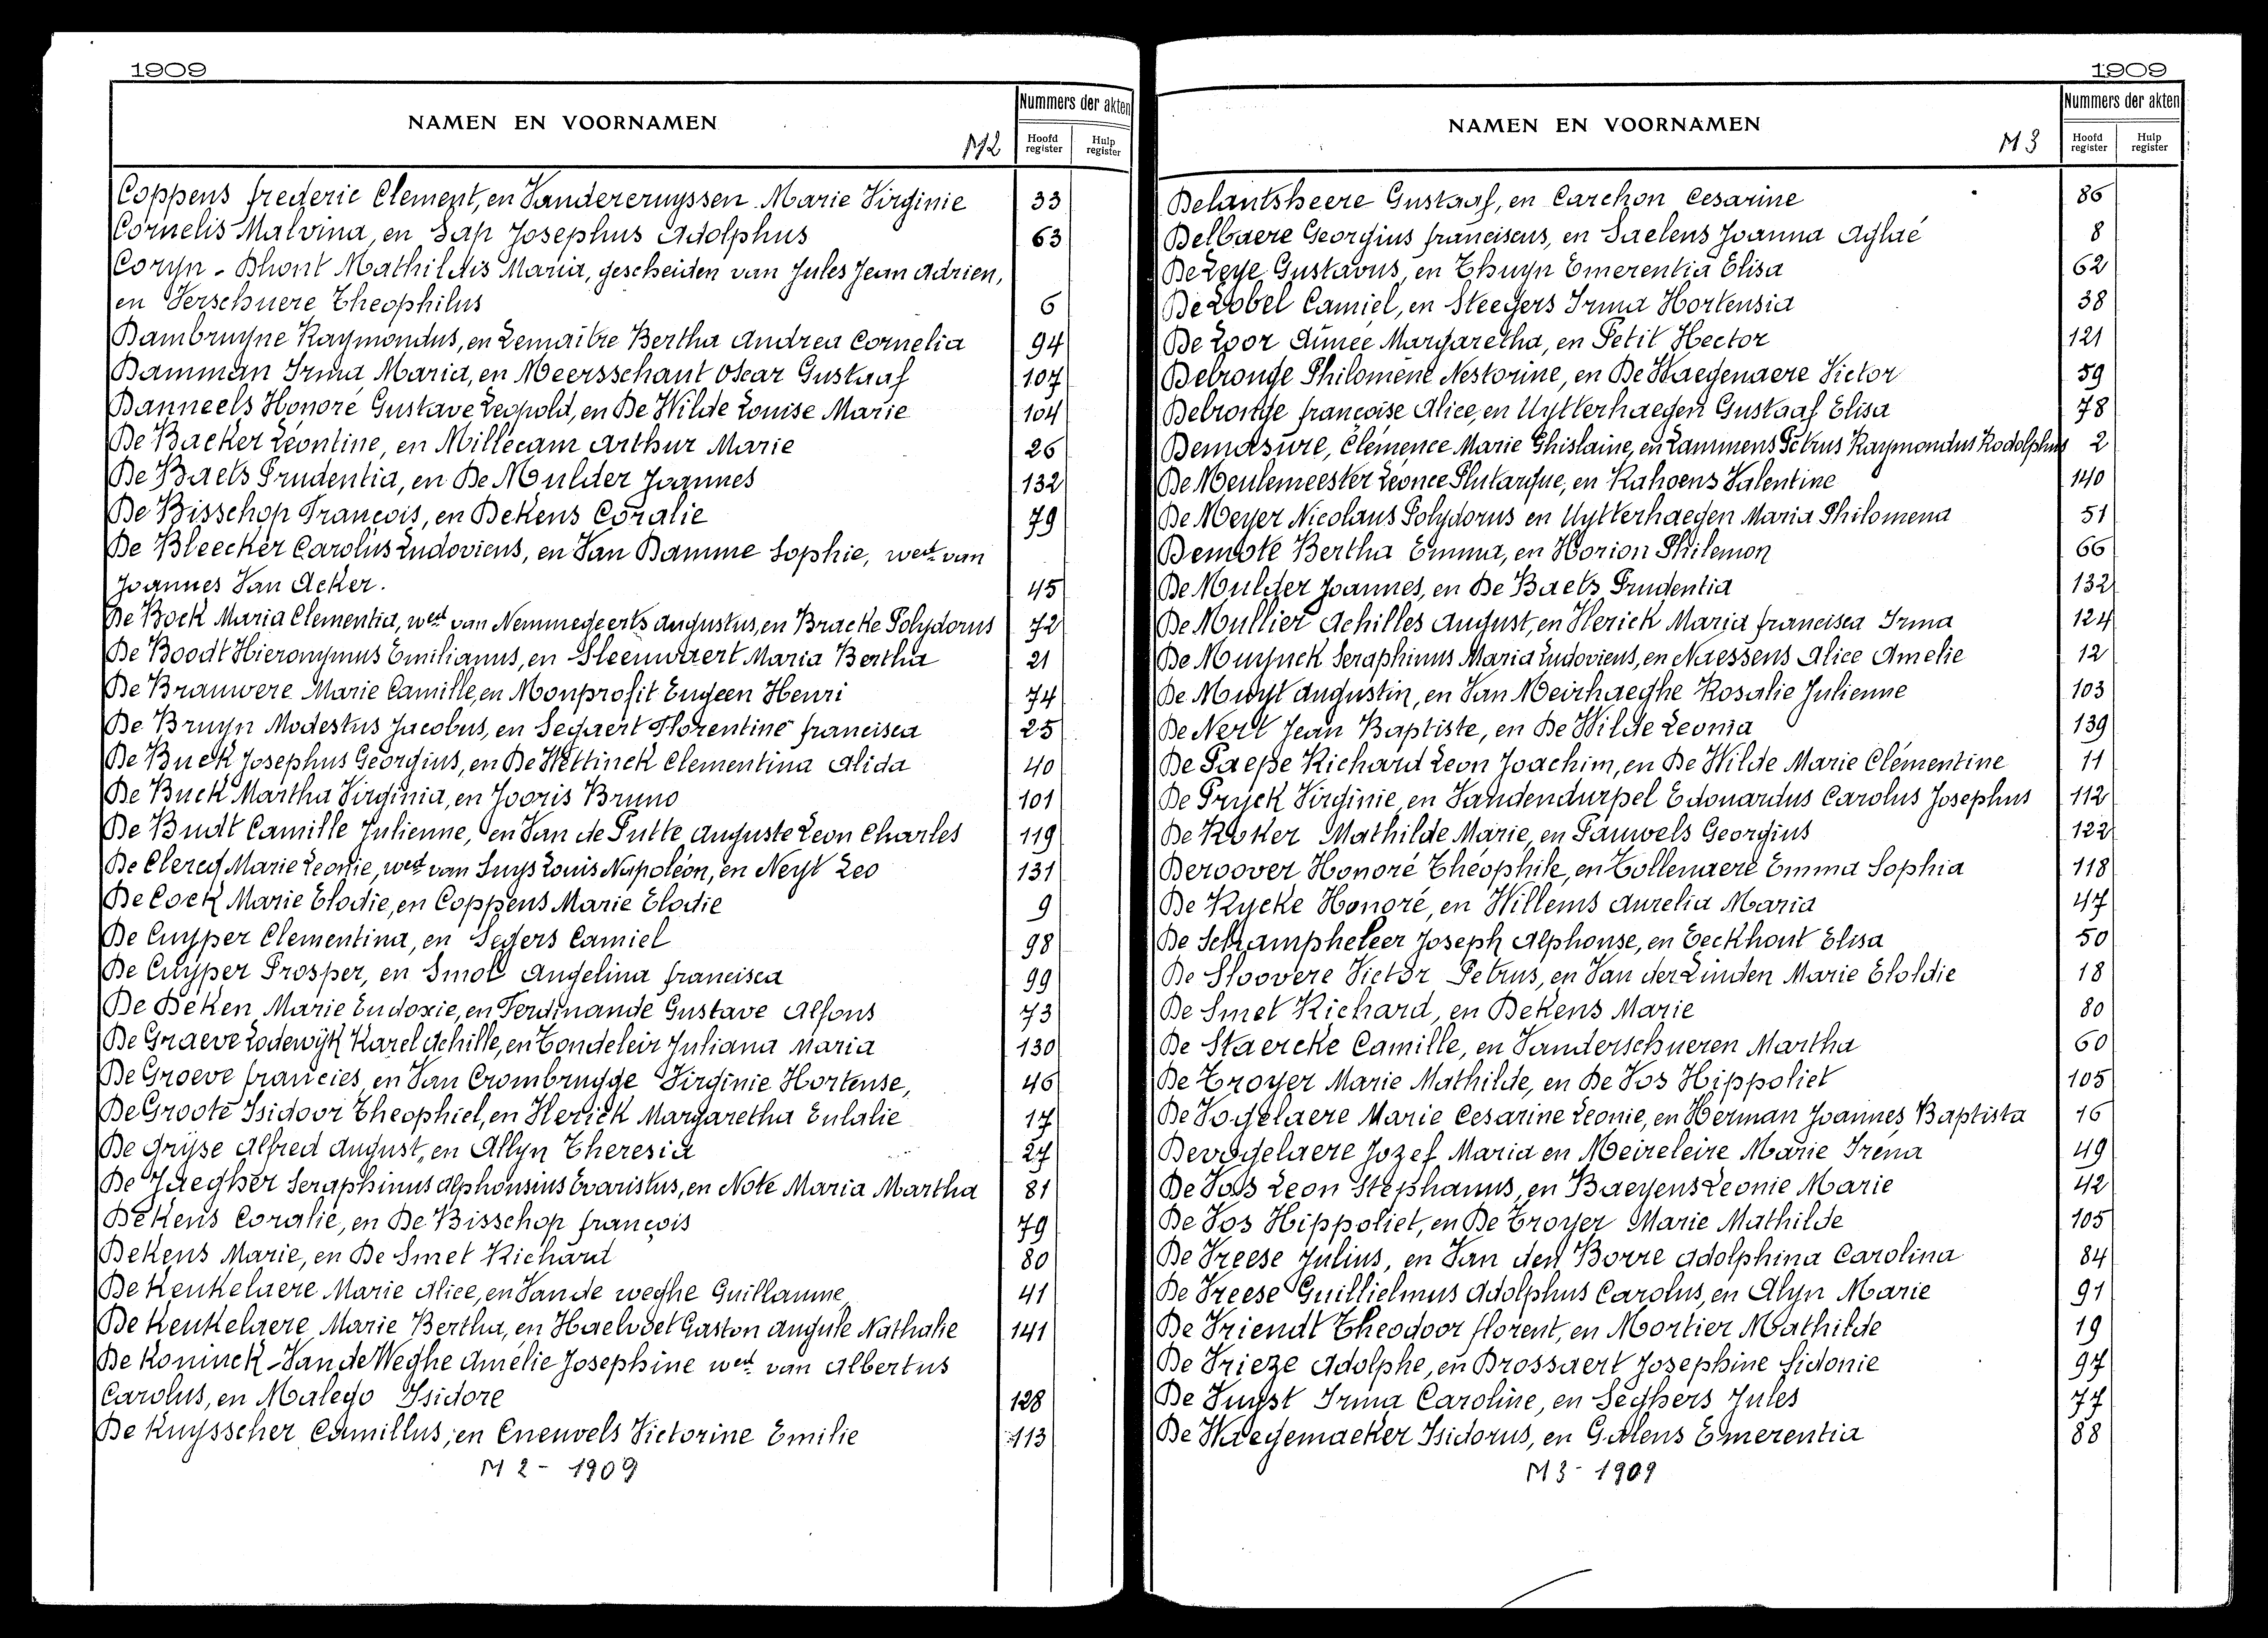 1909
NAMEN EN VOORNAMEN
M2
Nummers der akten
Hoofd register
Hulp register
Coppens frederic Clement, en Vandercruyssen Marie Virginie 33
Cornelis Malvina, en Sap Josephus Adolphus 63
Coryn - Dhont Mathildis Maria, gescheiden van Jules Jean Adrien,
en Verschuere Theophilus 6
Dambruyne Raymondus, en Lemaitre Bertha Andrea Cornelia 94
Damman Irma Maria, en Meersschaut Oscar Gustaaf 107
Danneels Honoré Gustave Leopold, en De Wilde Louise Marie 104
De Backer Léontine, en Millecam Arthur Marie 26
De Baets Prudentia, en De Mulder Joannes 132
De Bisschop François, en Dekens Coralie 79
De Bleecker Carolus Ludovicus, en Van Damme Sophie, wed. van
Joannes Van Acker. 45
De Bock Maria Clementia, wed. van Nemmegeerts Augustus, en Bracke Polydorus 72
De Boodt Hieronymus Emilianus, en Sleeuwaert Maria Bertha 21
De Brauwere Marie Camille, en Monprofit Eugeen Henri 74
De Bruyn Modestus Jacobus, en Segaert Florentine francisca 25
De Buck Josephus Georgius, en De Wettinck Clementina Alida 40
De Buck Martha Virginia, en Jooris Bruno 101
De Budt Camille Julienne, en Van de Putte Auguste Leon Charles 119
De Clercq Marie Leonie, wed. van Suys Louis Napoléon, en Neyt Leo 131
De Cock Marie Elodie, en Coppens Marie Elodie 9
De Cuyper Clementina, en Segers Camiel 98
De Cuyper Prosper, en Smol Angelina francisca 99
De Deken Marie Eudoxie, en Ferdinande Gustave Alfons 73
De Graeve Lodewijk Karel Achille, en Tondeleir Juliana Maria 130
De Groeve francies, en Van Crombrugge Virginie Hortense, 46
De Groote Isidoor Theophiel, en Herick Margaretha Eulalie 17
De Gryse Alfred August, en Allyn Theresia 27
De Jaegher Seraphinus Alphonsius Evaristus, en Note Maria Martha 81
Dekens Coralie, en De Bisschop françois 79
Dekens Marie, en De Smet Richard 80
De Keukelaere Marie Alice, en Van de weghe Guillaume 41
De Keukelaere Marie Bertha, en Haelvoet Gaston Angule Nathalie 141
De Koninck - Van de Weghe Amélie Josephine wed. van Albertus
Carolus, en Malego Isidore 128
De Kuysscher Camillus, en Eneuvels Victorine Emilie 113
M 2 - 1909
1909
NAMEN EN VOORNAMEN
M 3
Nummers der akten
Hoofd register
Hulp register
Delantsheere Gustaaf, en Carchon Cesarine 86
Delbaere Georgius franciscus, en Saelens Joanna Aglaé 8
De Leye Gustavus, en Thuyn Emerentia Elisa 62
De Lobel Camiel, en Steegers Irma Hortensia 38
De Loor Aimée Margaretha, en Petit Hector 121
Delronge Philomène Nestorine, en De Waegenaere Victor 59
Delronge françoise Alice, en Uytterhaegen Gustaaf Elisa 78
Demasure, Clémence Marie Ghislaine, en Lammens Petrus Raymondus Rodolphus 2
De Meulemeester Léonce Plutarque, en Kahoens Valentine 140
De Meyer Nicolaus Polydorus en Uytterhaegen Maria Philomena 51
Demote Bertha Emma, en Horion Philemon 66
De Mulder Joannes, en De Baets Prudentia 132
De Mullier Achilles August, en Herick Maria francisca Irma 124
De Muynck Seraphinus Maria Ludovicus, en Naessens Alice Amelie 12
De Muyt Augustin, en Van Meirhaeghe Rosalie Julienne 103
De Nert Jean Baptiste, en De Wilde Leonia 139
De Paepe Richard Leon Joachim, en De Wilde Marie Clémentine 11
De Pryck Virginie, en Vandendurpel Edouardus Carolus Josephus 112
De Roker Mathilde Marie, en Pauwels Georgius 122
Deroover Honoré Théophile, en Tollenaere Emma Sophia 118
De Rycke Honoré, en Willems Aurelia Maria 47
De Schampheleer Joseph Alphonse, en Eeckhout Elisa 50
De Sloovere Victor Petrus, en Van der Linden Marie Eloldie 18
De Smet Richard, en Dekens Marie 80
De Staercke Camille, en Vanderschueren Martha 60
De Troyer Marie Mathilde, en De Vos Hippoliet 105
De Vogelaere Marie Cesarine Leonie, en Herman Joannes Baptista 16
Devogelaere Jozef Maria en Meireleire Marie Iréna 49
De Vos Leon Stephanus, en Baeyens Leonie Marie 42
De Vos Hippoliet, en De Troyer Marie Mathilde 105
De Vreese Julius, en Van den Borre Adolphina Carolina 84
De Vreese Guillielmus Adolphus Carolus, en Alyn Marie 91
De Vriendt Theodoor florent, en Mortier Mathilde 19
De Vrieze Adolphe, en Brossaert Josephine Sidonie 97
De Vuyst Irma Caroline, en Seghers Jules 77
De Waegemaeker Isidorus, en Galens Emerentia 88
M 3 - 1909